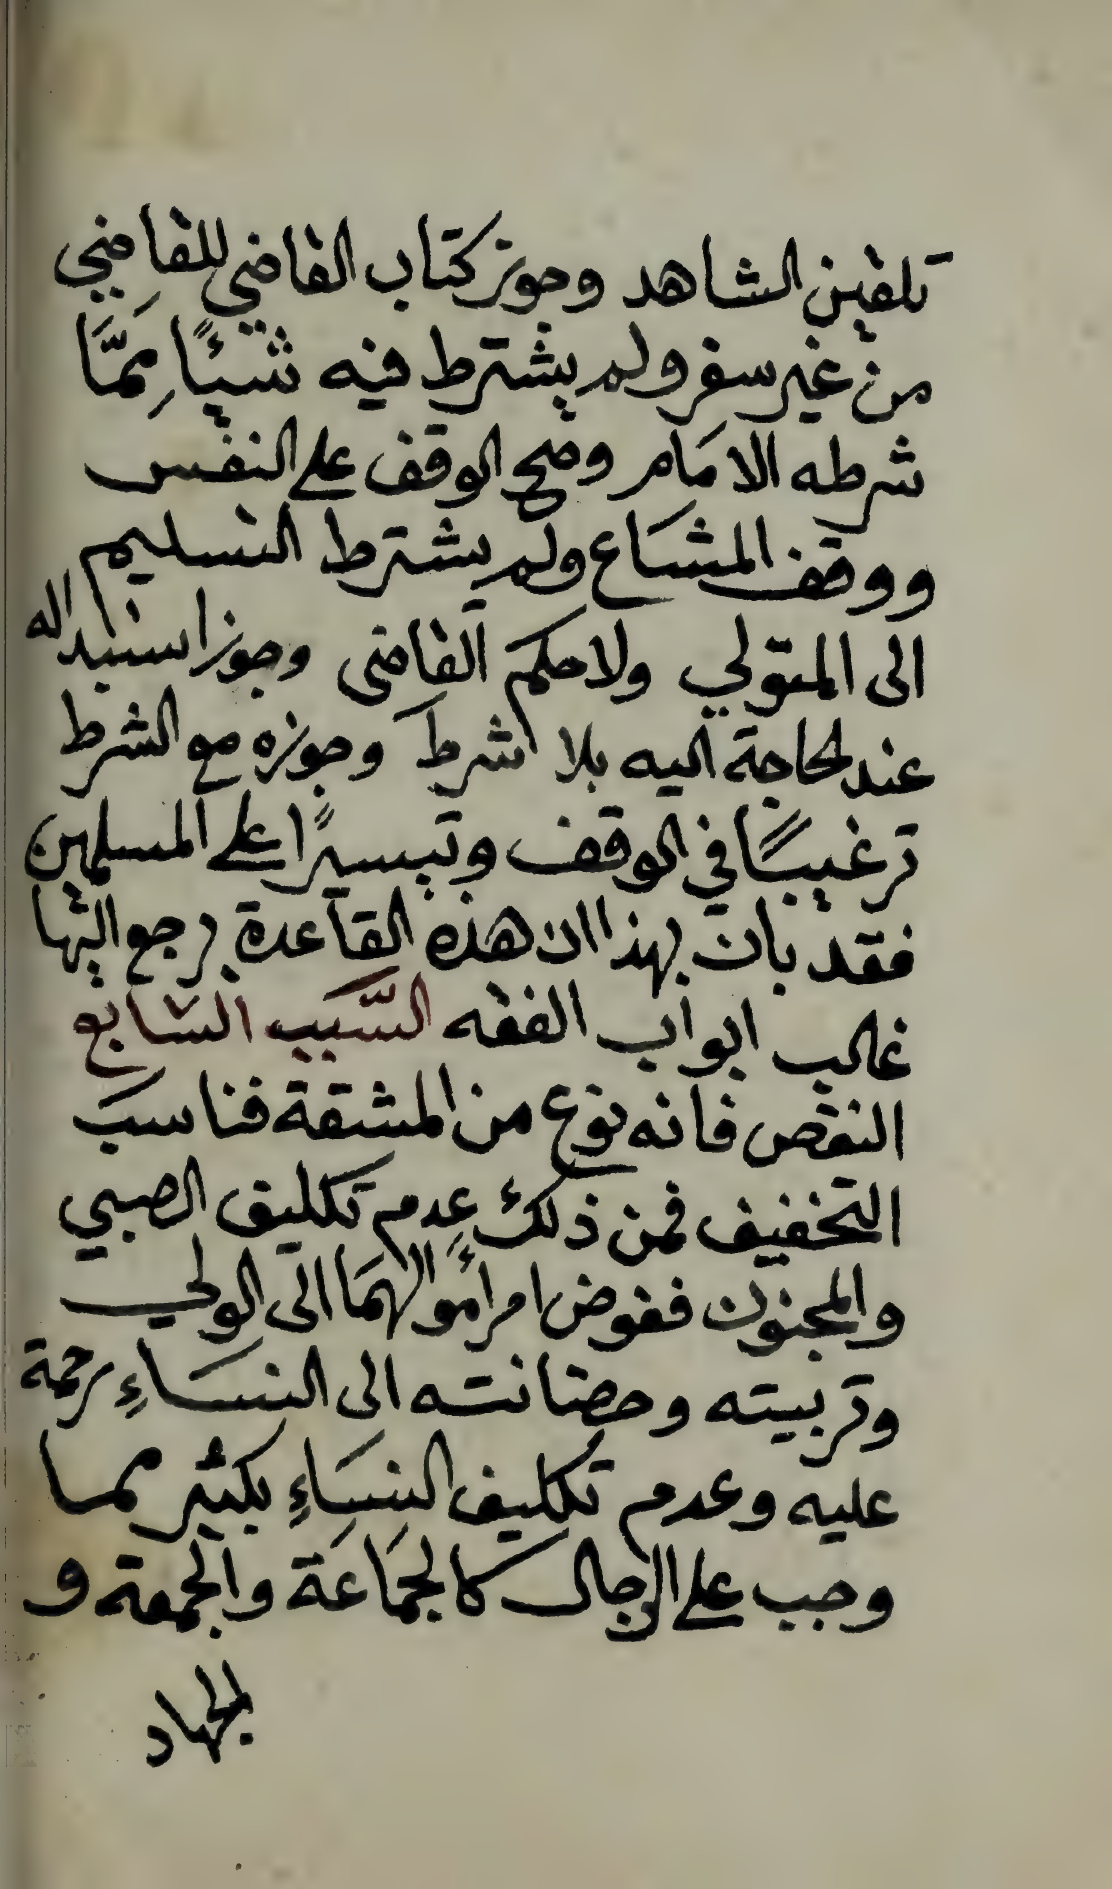 تلقين الشاهد وجوز كتاب القاضي للقاضي
من غير سفر ولم يشترط فيه شيئًا مِمَّا
شرطه الامام وصح الوقف على النفس
ووقف المشاع ولم يشترط التسليم
الى المتولي ولا حكم القاضى وجوز استبداله
عند لحاجة اليه بلا شرط وجوزه مع الشرط
ترغيبًا في الوقف وتيسيرًا على المسلمين
فقد بان بهذا ان هذه القاعدة يرجع اليها
غالب ابواب الفقه السَّبب السابع
النقص فانه نوع من المشقة فناسب
التخفيف فمن ذلك عدم تكليف الصبي
والمجنون ففوض امر أموالهما الى الولي
وتربيته وحضانته الى النساءِ رحمة
عليه وعدم تكليف النساءِ بكثير مما
وجب على الرجال كالجماعة والجمعة و
الجهاد